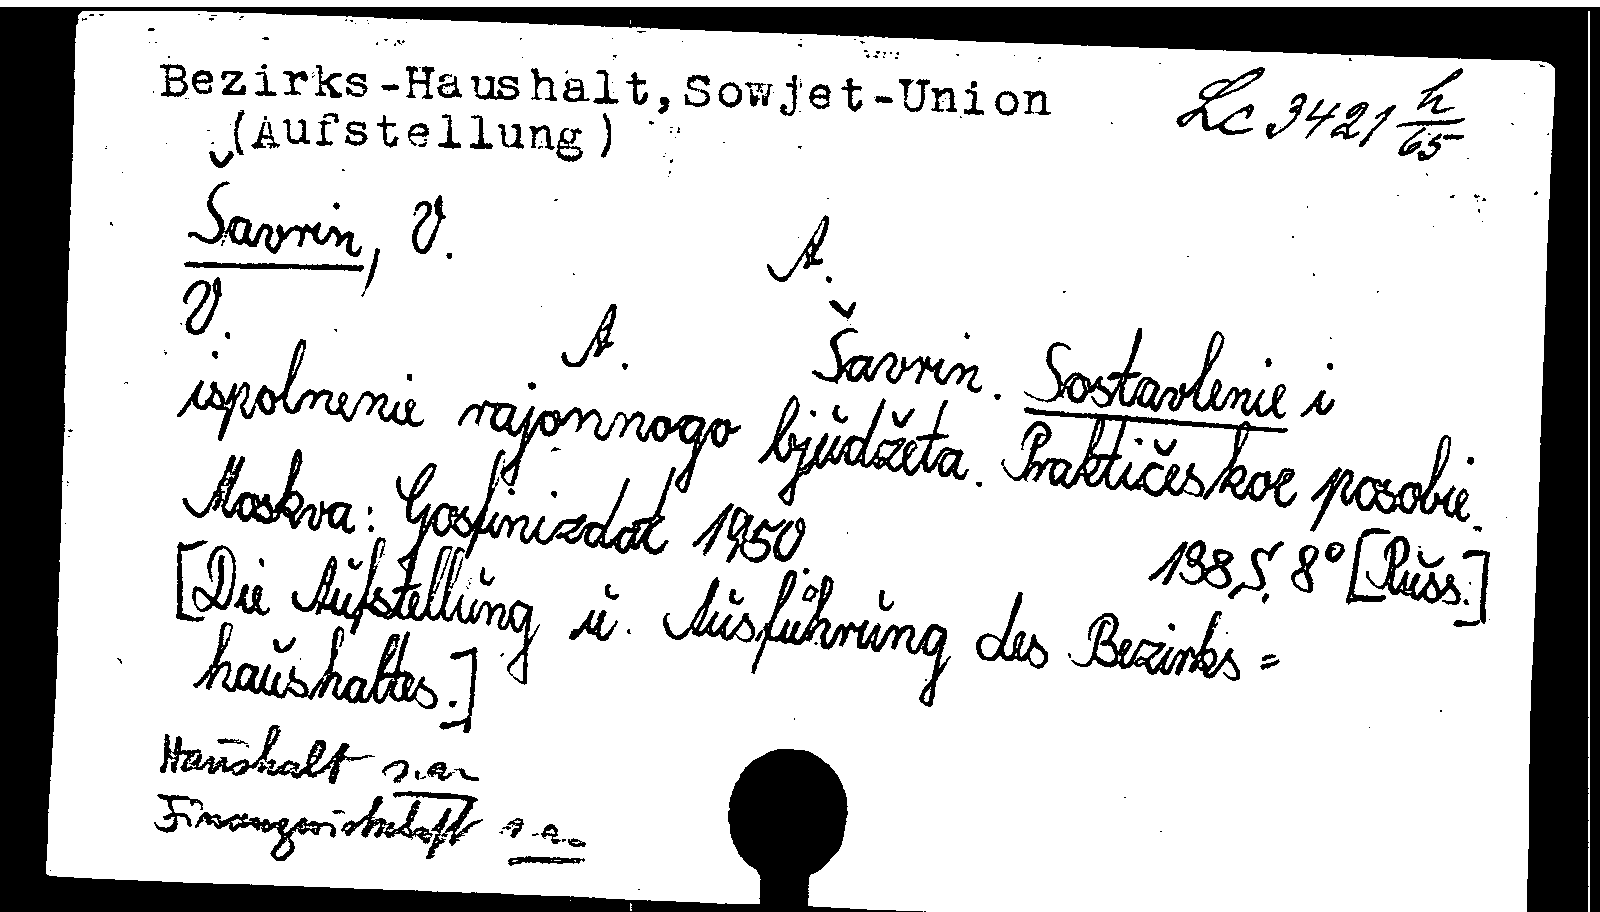 Bezirks-Haushalt, Sowjet-Union
(Aufstellung)
Lc 3421 h/65
Šavrin, V. A.
V. A. Šavrin. Sostavlenie i
ispolnenie rajonnogo bjudžeta. Praktičeskoe posobie.
Moskva: Gosfinizdat 1950. 138 S. 8° [Russ.]
[Die Aufstellung u. Ausführung des Bezirks=
haushaltes.]
Haushalt s.a.
Finanzwirtschaft s.a.